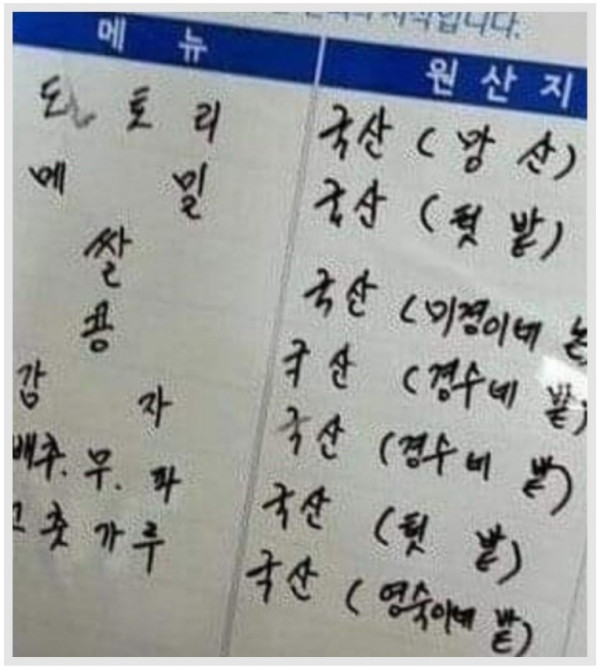 시작입니다.
메뉴 원산지
도토리 국산 (망산)
메밀 국산 (텃밭)
쌀 국산 (미경이네 논
콩 국산 (경수네 밭)
감자 국산 (경수네 밭)
배추. 무. 파 국산 (텃밭)
고춧가루 국산 (영숙이네 밭)